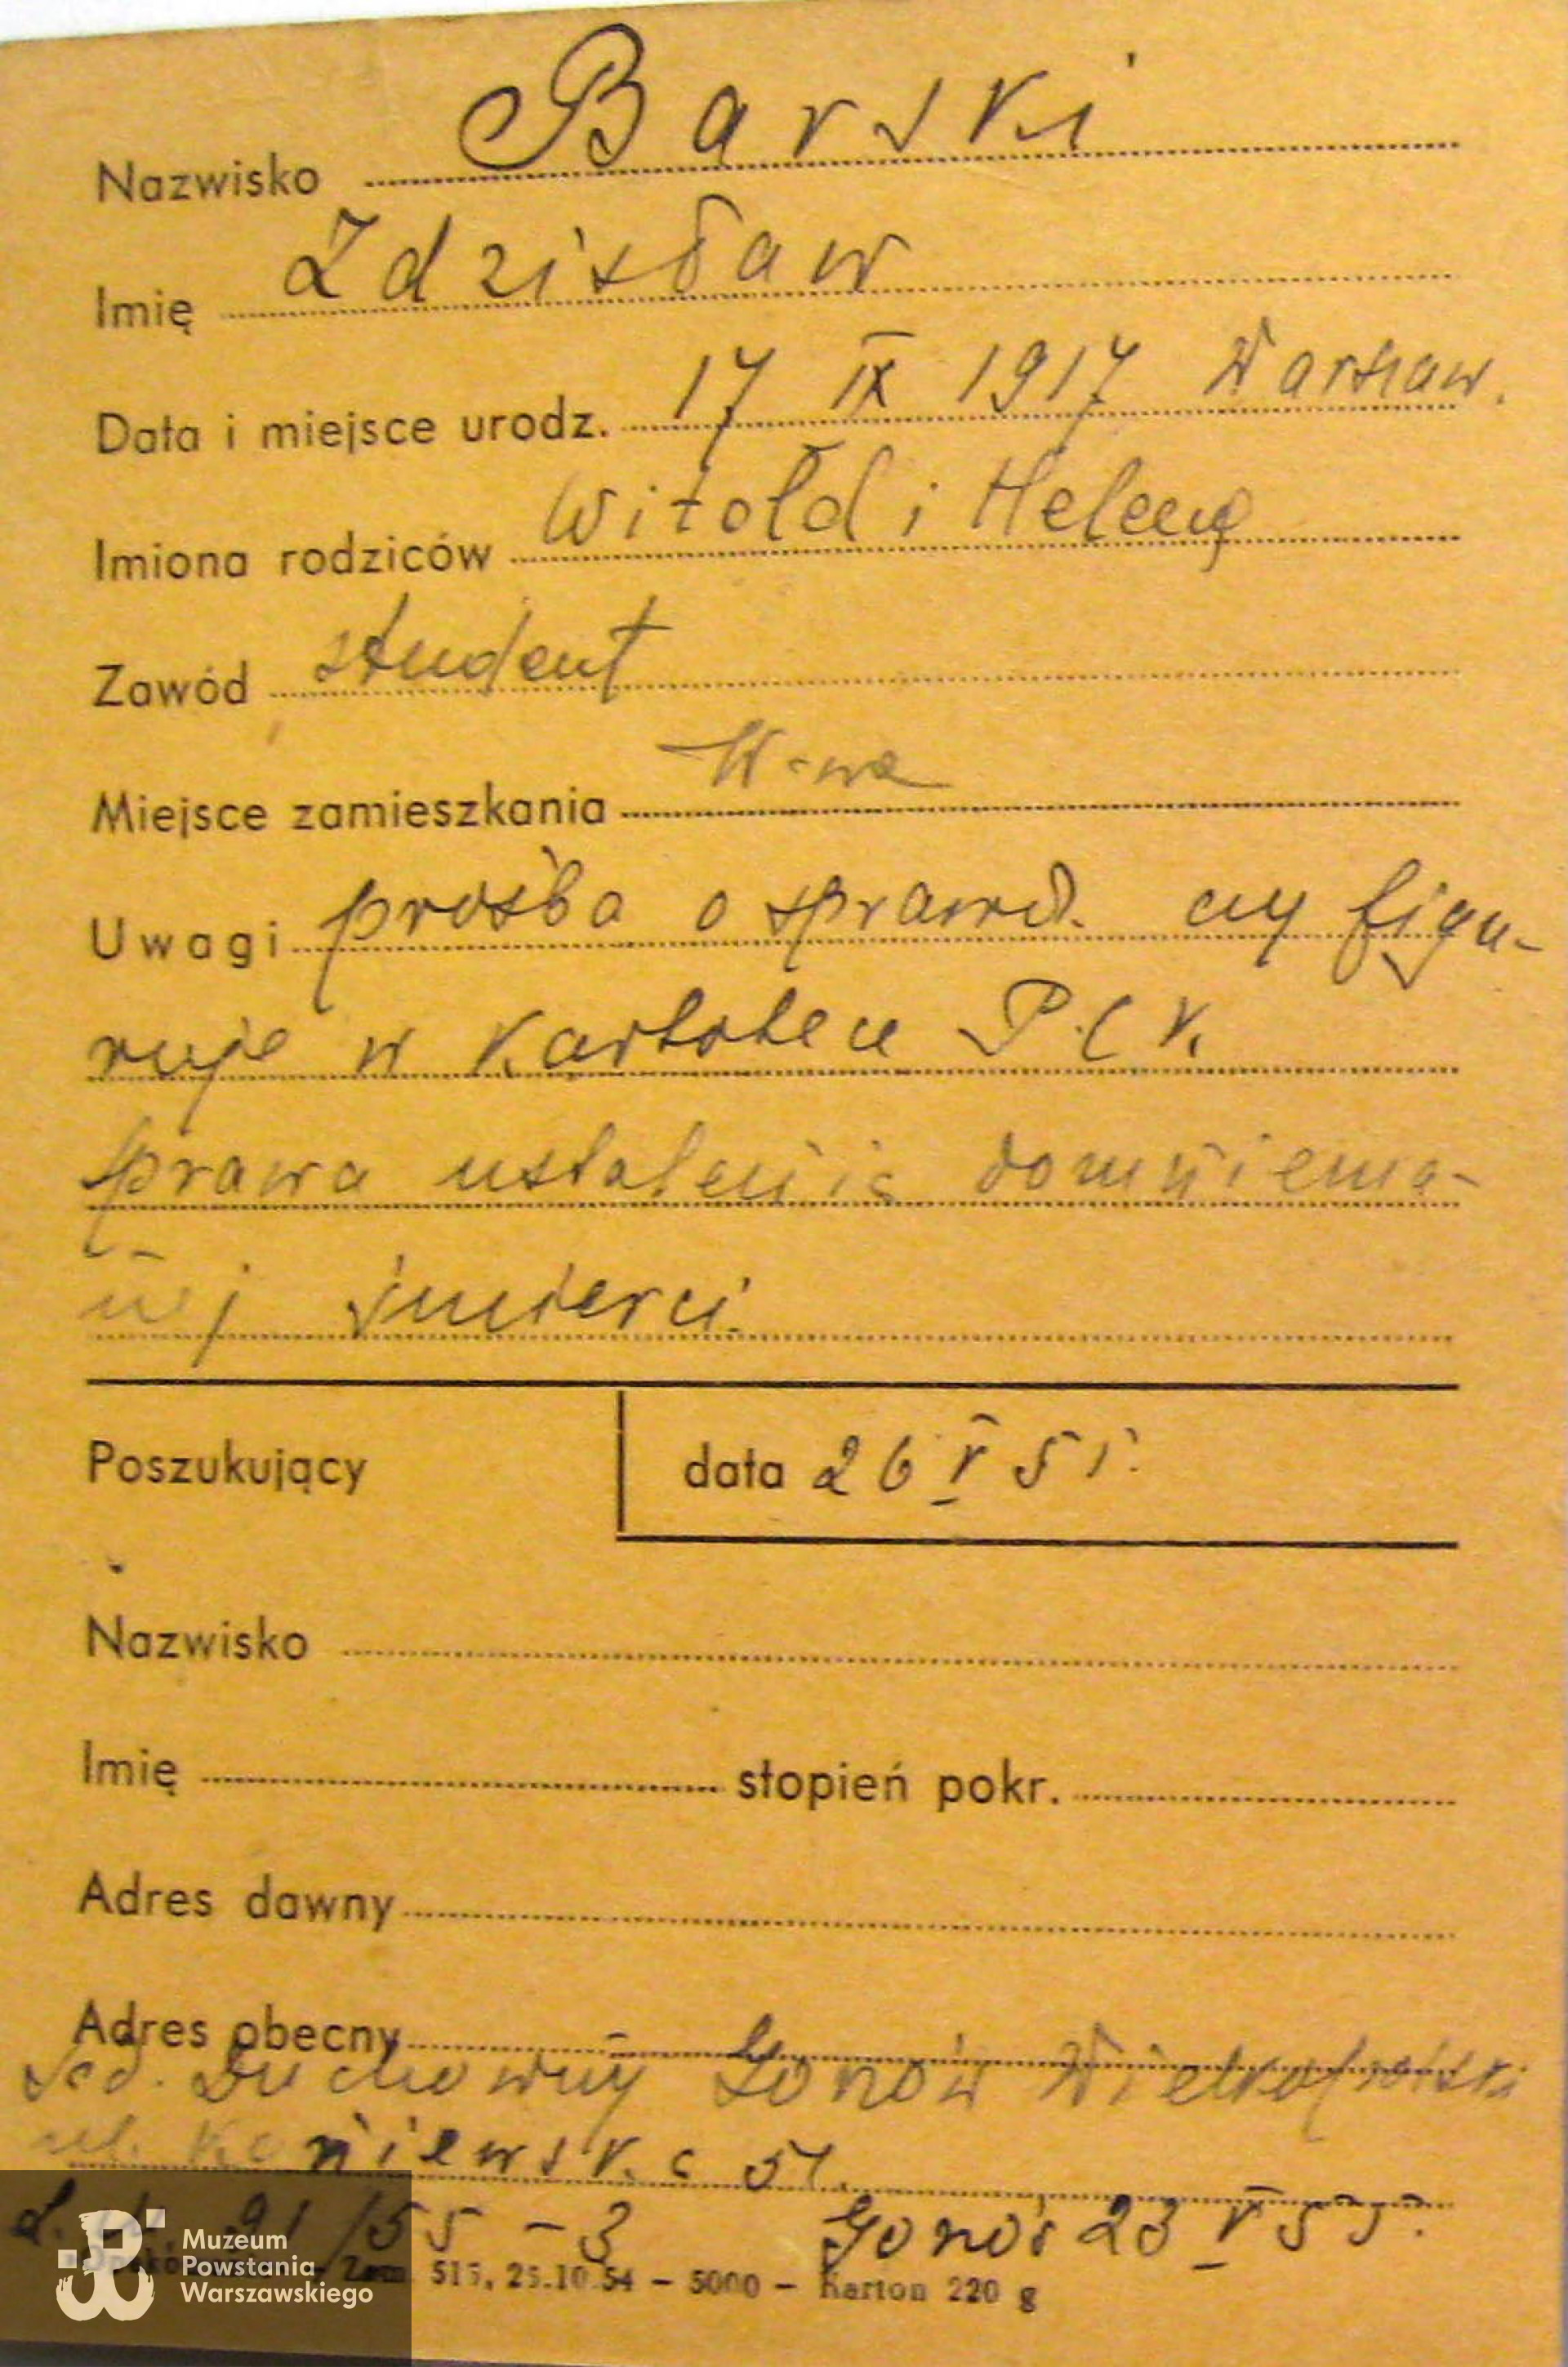 Nazwisko Barski
Imię Zdzisław
Data i miejsce urodz. 17 IX 1917 Warszaw.
Imiona rodziców Witold i Heleny
Zawód student
Miejsce zamieszkania W-wa
Uwagi prośba o sprawd. czy figu-
ruje w kartotece P.C.K.
sprawa ustalenia domniema-
nej śmierci.
Poszukujący data 26 V 55.
Nazwisko
Imię stopień pokr.
Adres dawny
Adres obecny
Sąd. Duchowny Gorzów Wielkopolski
ul. 51.
91/55 - 3 23 V 55.
Zam. 515, 25.10.54 – 5000 – Karton 220 g
Muzeum
Powstania
Warszawskiego